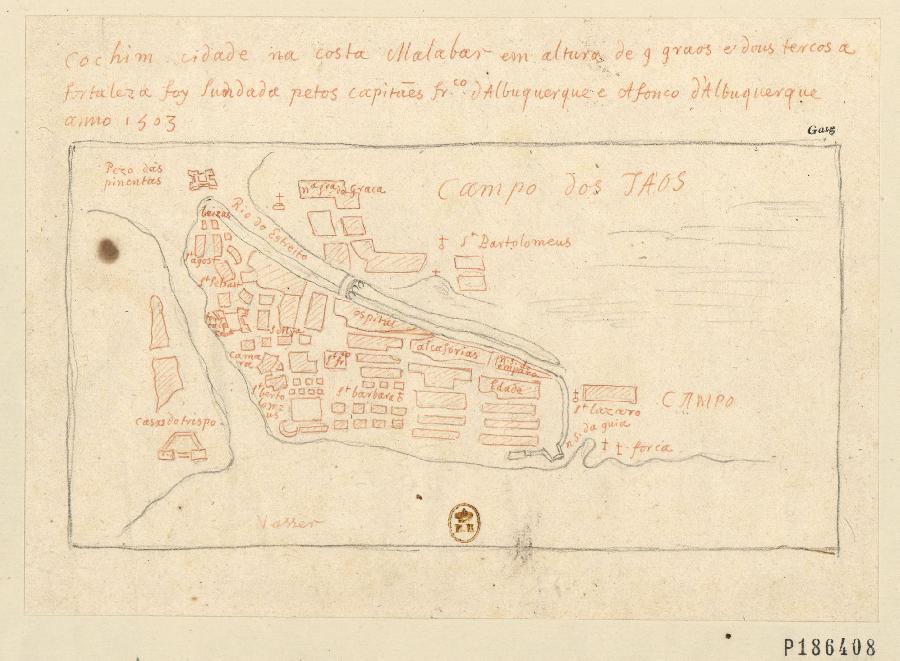 Cochim cidade na costa Malabar em altura de 9 graos e dous tercos a
fortaleza foy fundada petos capitães fr.co d'Albuquerque e Afonco d'Albuquerque
anno 1503
Gasg
Pezo das
pimentas
Rio do Estreito
na sra da Graca
CAMPO dos JAOS
St Bartolomeus
st agost
st Sebast
ospital
alcasarias
ns do
emparo
cama
ra
st barbara
st berto
lome
us
Edade
st Lazaro
CAMPO
ns. da guia
forca
casas do trispo
Vasser
P186408